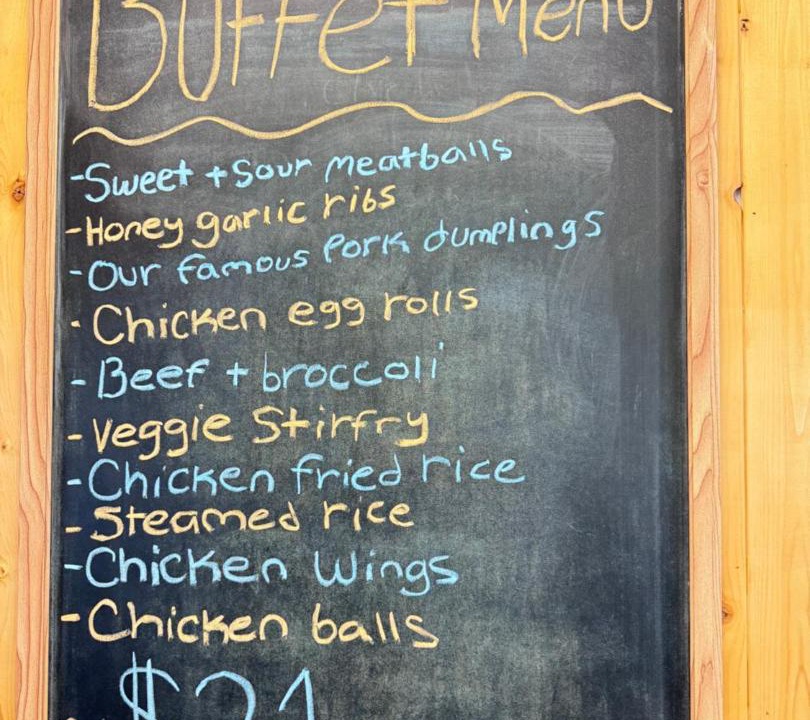 Buffet Menu
-Sweet + Sour meatballs
-Honey garlic ribs
-Our famous Pork dumplings
-Chicken egg rolls
-Beef + broccoli
-Veggie Stirfry
-Chicken fried rice
-Steamed rice
-Chicken Wings
-Chicken balls
$21